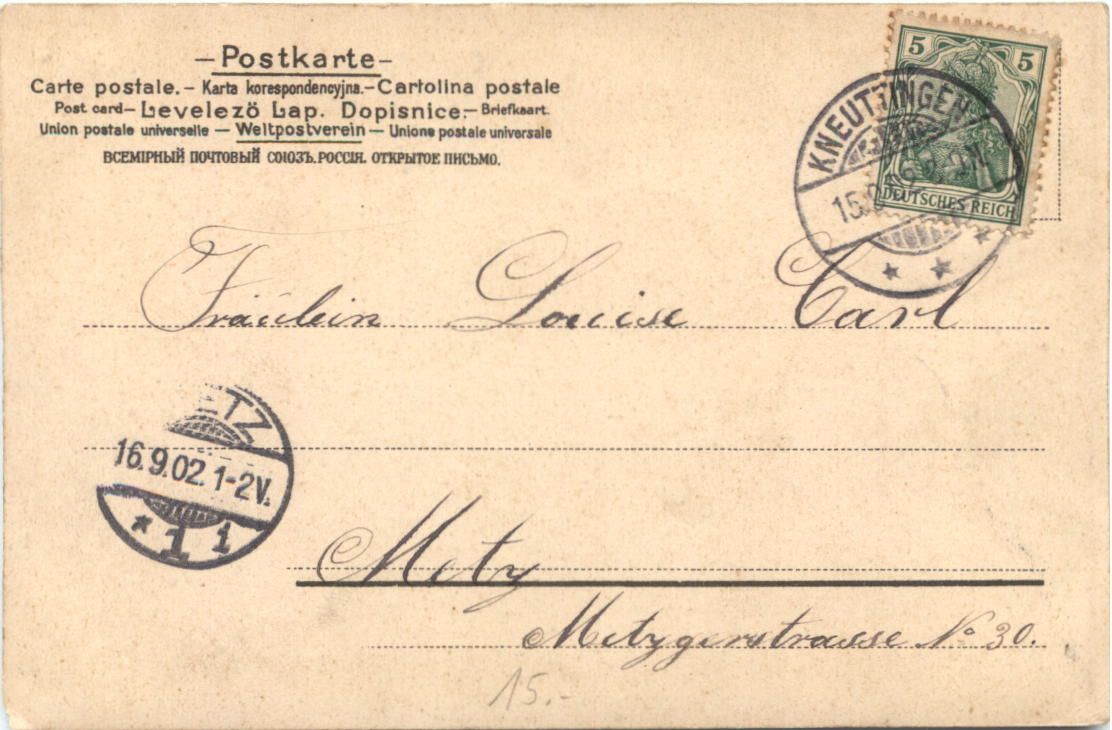 – Postkarte –
Carte postale. – Karta korespondencyjna. – Cartolina postale
Post card – Levelező Lap. Dopisnice. – Briefkaart.
Union postale universelle – Weltpostverein – Unione postale universale
ВСЕМІРНЫЙ ПОЧТОВЫЙ СОЮЗЪ. РОССІЯ. ОТКРЫТОЕ ПИСЬМО.
5 5
DEUTSCHES REICH
KNEUTTINGEN
15.
Fräulein Louise Carl
ETZ
16.9.02. 1-2V.
* 1 i
Metz
Metzgerstrasse No 30.
15.-